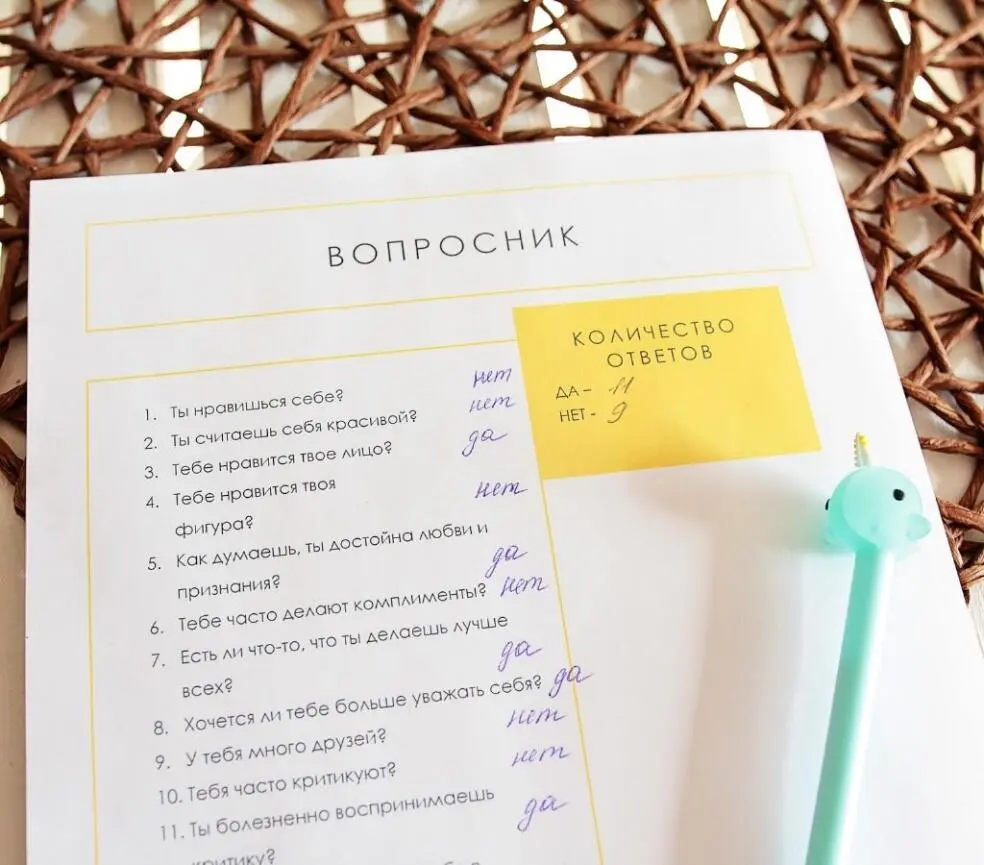 ВОПРОСНИК
КОЛИЧЕСТВО
ОТВЕТОВ
ДА - 11
НЕТ - 9
1. Ты нравишься себе? нет
2. Ты считаешь себя красивой? нет
3. Тебе нравится твое лицо? да
4. Тебе нравится твоя
фигура? нет
5. Как думаешь, ты достойна любви и
признания? да
6. Тебе часто делают комплименты? нет
7. Есть ли что-то, что ты делаешь лучше
всех? да
8. Хочется ли тебе больше уважать себя? да
9. У тебя много друзей? нет
10. Тебя часто критикуют? нет
11. Ты болезненно воспринимаешь
критику? да